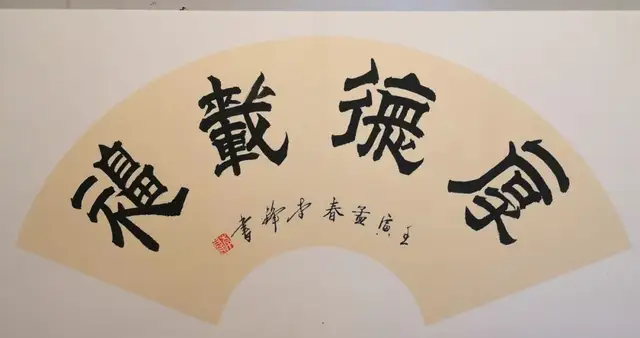 厚德載福
壬寅孟春李 書